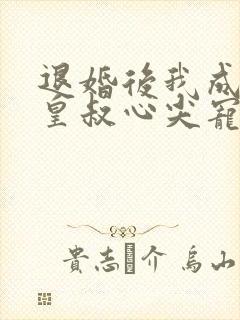 退婚後我成
皇叔心尖寵
貴志 介 烏山